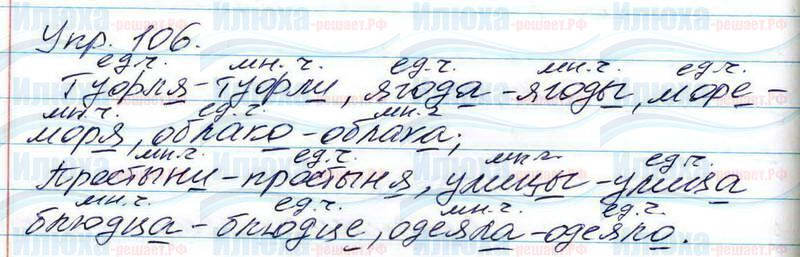 Упр. 106.
ед.ч. мн.ч. ед.ч. мн.ч. ед.ч.
Туфля-туфли, ягода-ягоды, море-
мн.ч. ед.ч. мн.ч.
моря, облако-облака;
мн.ч. ед.ч. мн.ч. ед.ч.
Простыни-простыня, улицы-улица
мн.ч. ед.ч. мн.ч. ед.ч.
блюдца-блюдце, одеяла-одеяло.
Илюха-решает.РФ